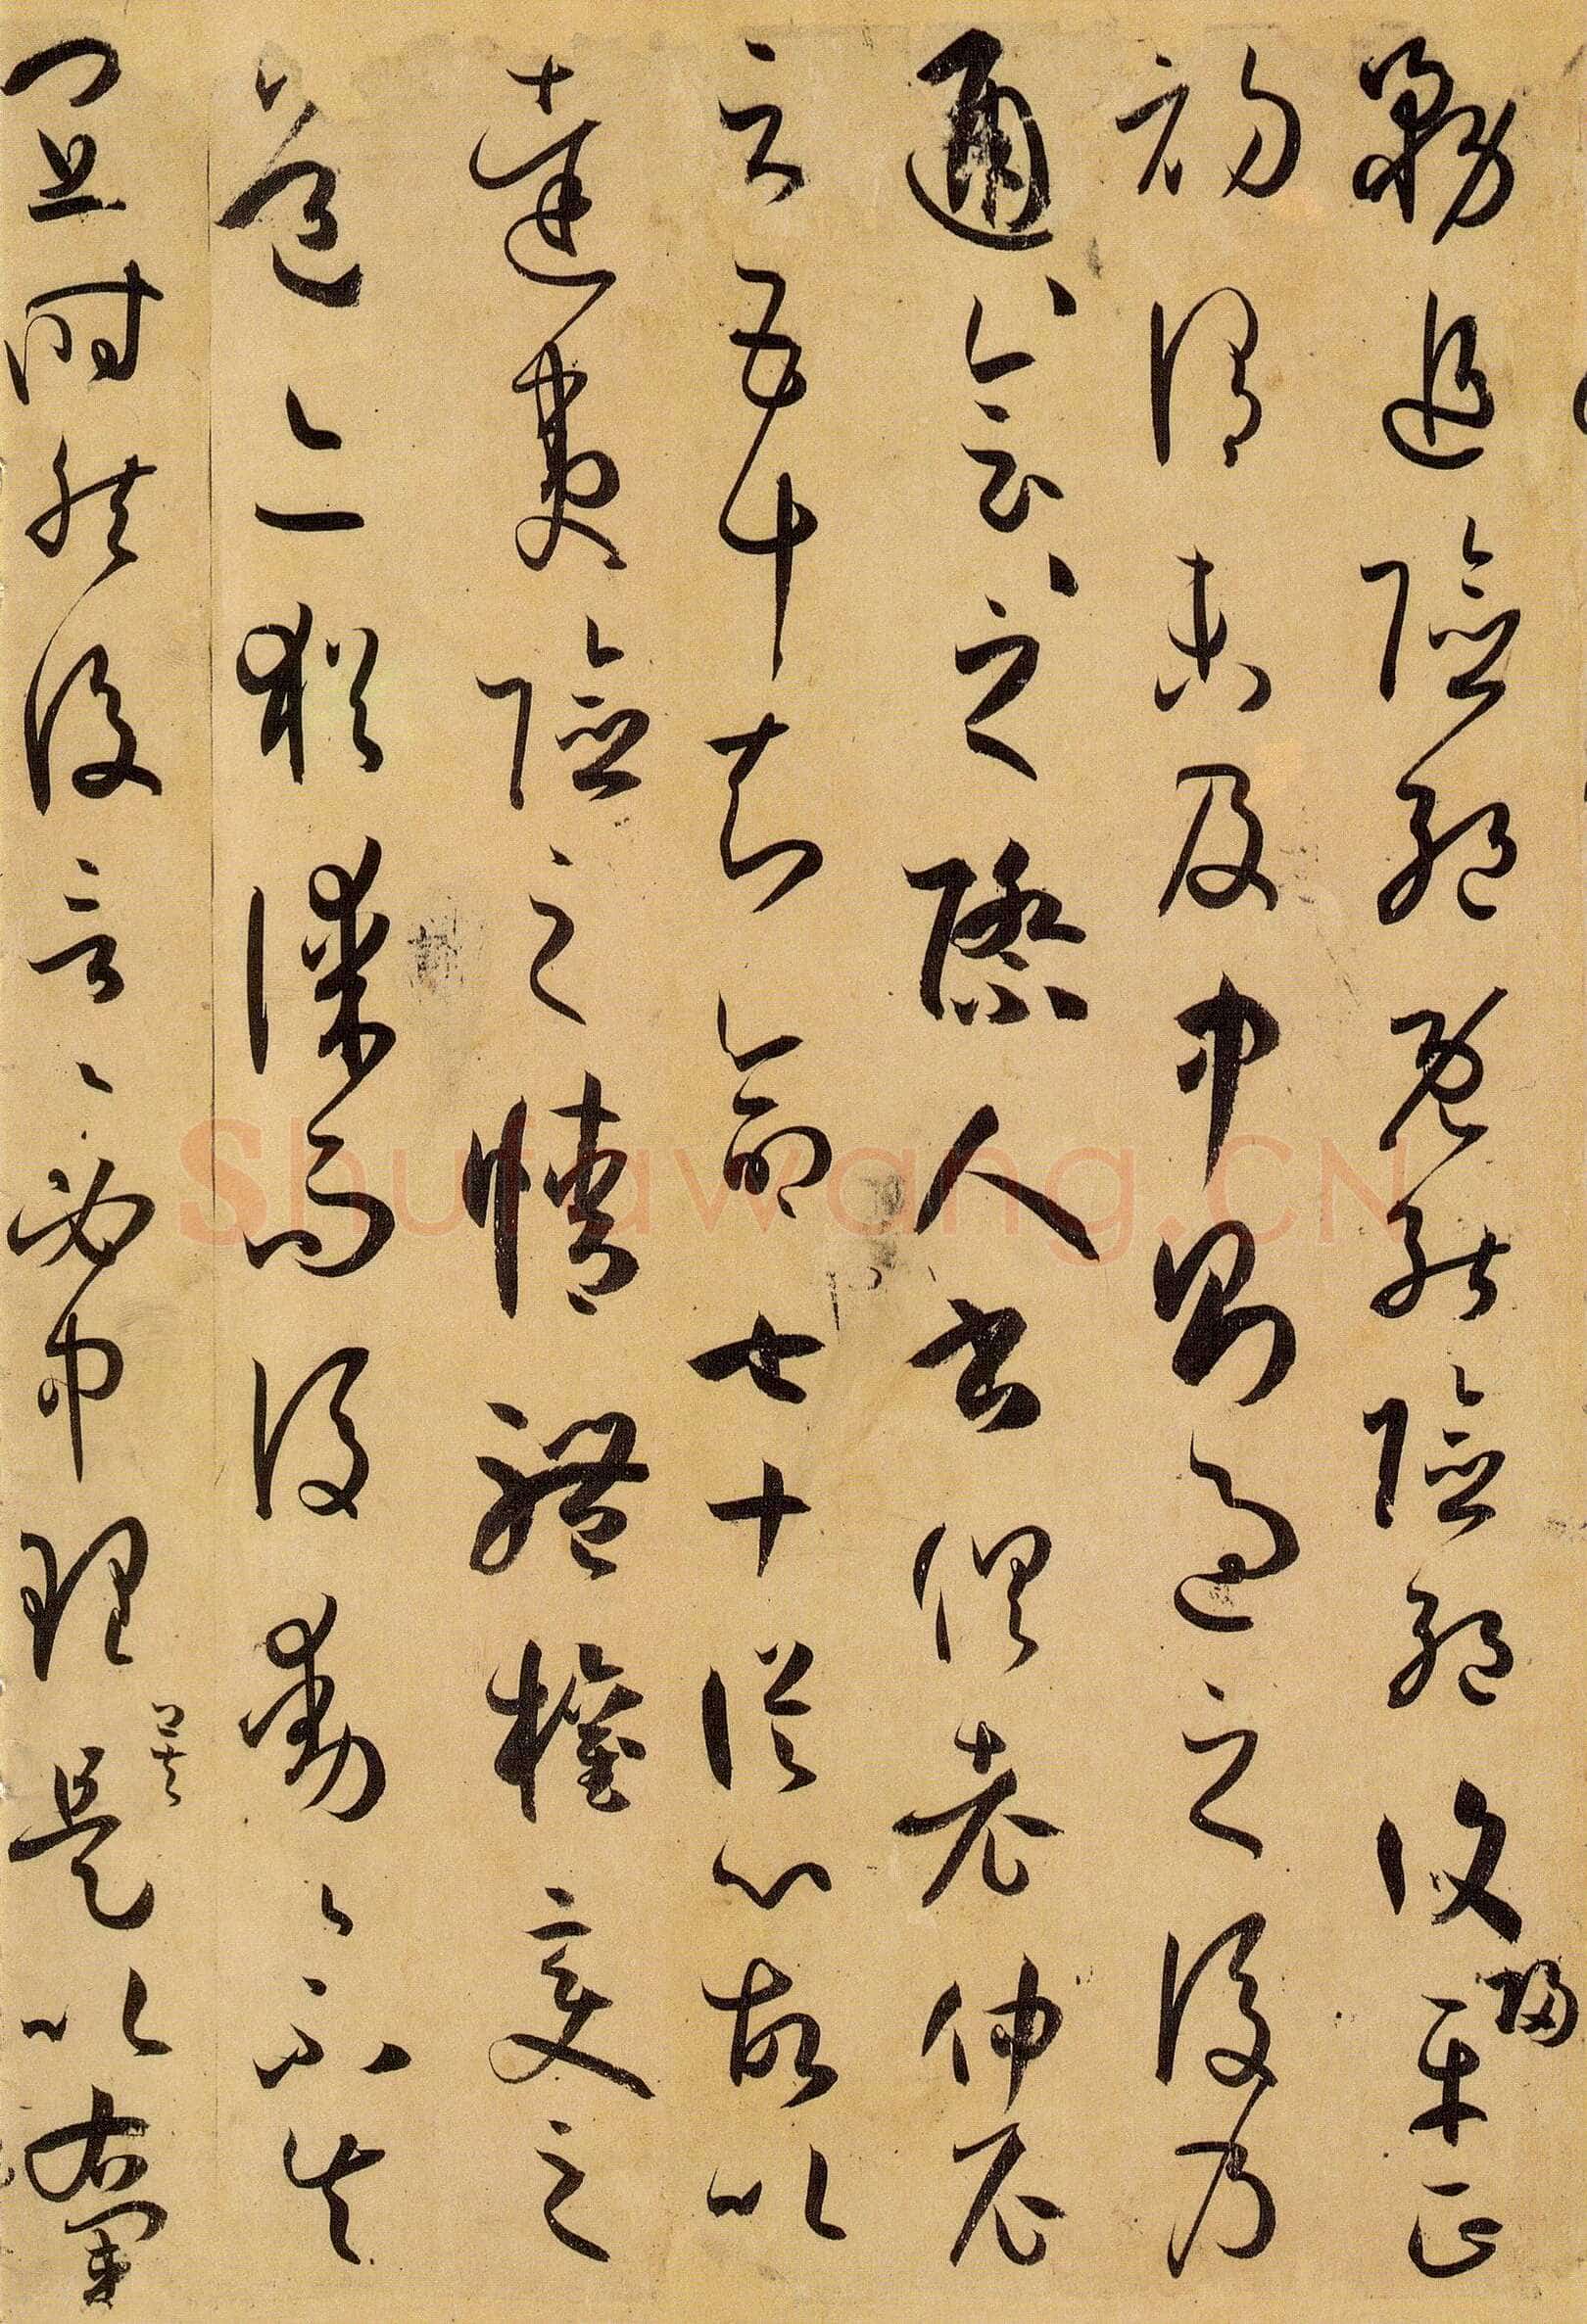 務追險絕既能險絕復歸平正
初謂未及中則過之後乃
通〻會〻之際人書俱老仲尼
云五十知命七十從心故以
達夷險之情體權變之
道亦猶謀而後動〻不失
宜時然後言〻必中理矣是以右軍
Shufawang.CN